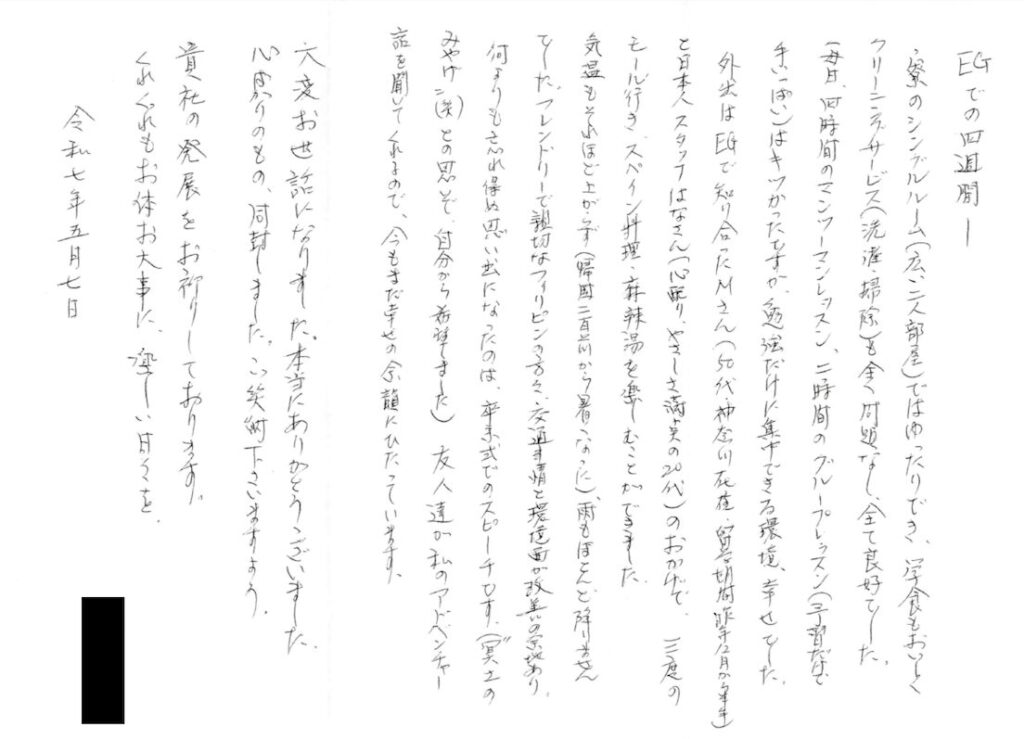 EGでの四週間ー
・寮のシングルルーム(広い二人部屋)ではゆったりでき、学食もおいしく
クリーニングサービス(洗濯・掃除)も全く問題なし、全て良好でした。
(毎日、四時間のマンツーマンレッスン、二時間のグループレッスン(予習だけで
手いっぱい)はキツかったですが、勉強だけに集中できる環境、幸せでした。
外出はEGで知り合ったMさん(50代・神奈川在住、留学期間昨年12月から半年)
と日本人スタッフはなさん(心配り、やさしさ満点の20代)のおかげで、三度の
モール行き、スペイン料理・麻辣湯を楽しむことができました。
気温もそれほど上がらず(帰国二日前から暑くなった)、雨もほとんど降りません
でした。フレンドリーで親切なフィリピンの方々、交通事情と環境面が改善の余地あり。
何よりも忘れ得ぬ思い出になったのは、卒業式でのスピーチです。(“冥土の
みやげ”(笑)との思いで、自分から希望しました) 友人達が私のアドベンチャー
話を聞いてくれるので、今もまだ幸せの余韻にひたっています。
大変お世話になりました。本当にありがとうございました。
心ばかりのもの、同封しました。ご笑納下さいますよう。
貴社の発展をお祈りしております。
くれぐれもお体お大事に、楽しい日々を。
令和七年五月七日